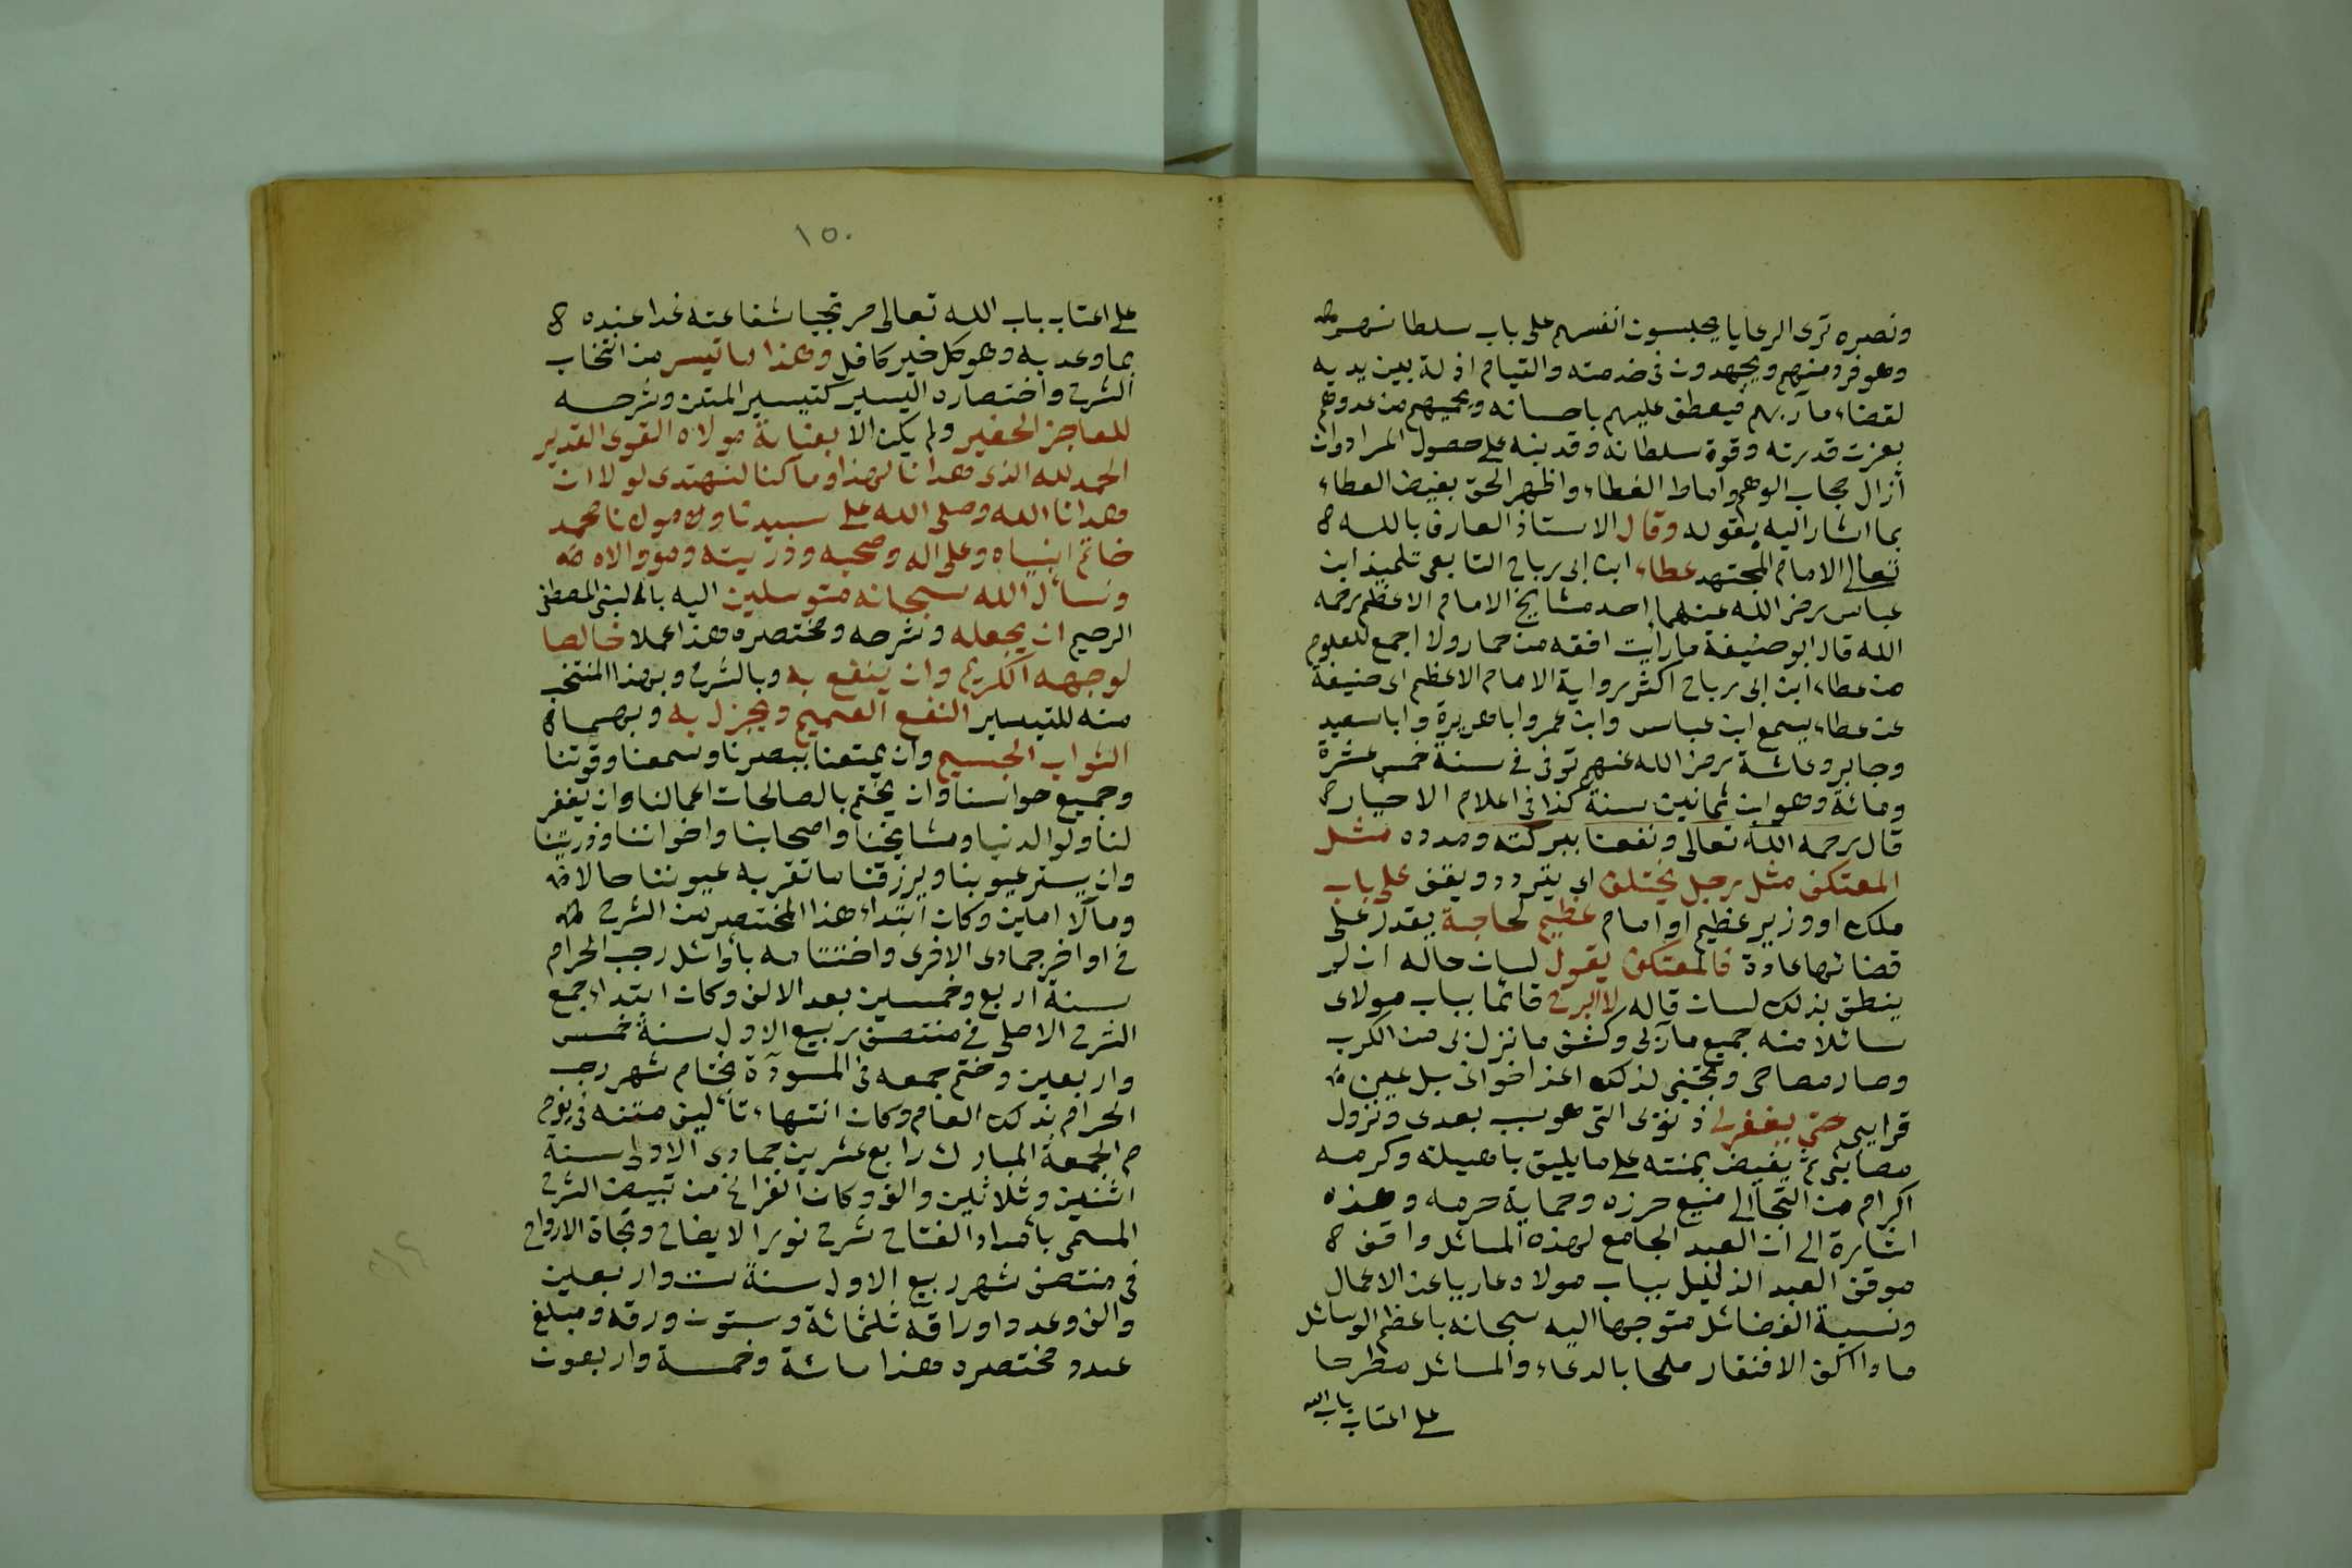 ونصره ترى الرعايا يحبسون انفسهم على باب سلطانهم
وهو فرد منهم ويجهدون فى خدمته والقيام اذلة بين يديه
لقضاء مآربهم فيعطف عليهم باحسانه ويحميهم من عدوهم
بعزت قدرته وقوة سلطانه وقد نبه على حصول المراد وان
أزال حجاب الوهم واماط الغطاء واظهر الحق بفيض العطاء
بما اشار اليه بقوله وقال الاستاذ العارف بالله
تعالى الامام المجتهد عطاء ابن ابى رباح التابعى تلميذ ابن
عباس رضى الله عنهما احد مشايخ الامام الاعظم رحمه
الله قال ابو حنيفة ما رأيت افقه من حماد ولا اجمع للعلوم
من عطاء ابن ابى رباح اكثر رواية الامام الاعظم ابى حنيفة
عن عطاء يسمع ابن عباس وابن عمر وابا هريرة وابا سعيد
وجابر وعائشة رضى الله عنهم توفى فى سنة خمس عشرة
ومائة وهو ابن ثمانين سنة كذا فى اعلام الاخيار
قال رحمه الله تعالى ونفعنا ببركته ومدده مثل
المعتكف مثل رجل يختلف اى يتردد ويقف على باب
ملك او وزير عظيم او امام عظيم لحاجة يقدر على
قضائها عادة فالمعتكف يقول لسان حاله ان لم
ينطق بذلك لسان قاله لا ابرح قائما بباب مولاى
سائلا منه جميع مآربى وكشف ما نزل بى من الكرب
وصار مصاحبى وتجنبنى لذلك اعز اخوانى بل عين
قرايبى حتى يغفر لى ذنوبى التى هى سبب بعدى ونزول
مصائبى ثم يفيض بمنته على ما يليق باهليته وكرمه
اكرام من التجأ الى منيع حرزه وحماية حرمه وهذه
اشارة الى ان العبد الجامع لهذه المسائل واقف
موقف العبد الذليل بباب مولاه عاريا عن الاعمال
ونسبة الفضائل متوجها اليه سبحانه باعظم الوسائل
مادا اكف الافتقار ملحا بالدعاء والمسائل مطرحا
على اعتاب باب الله
١٥٠
على اعتاب باب الله تعالى مرتجيا شفاعته غدا عنده
بما وعد به وهو كل خير كافل وهذا ما تيسر من انتخاب
الشرح واختصاره اليسير كتيسير المتن وشرحه
للعاجز الحقير ولم يكن الا بعناية مولاه القوى القدير
الحمد لله الذى هدانا لهذا وما كنا لنهتدى لولا ان
هدانا الله وصلى الله على سيدنا ومولانا محمد
خاتم انبياه وعلى اله وصحبه وذريته ومن والاه
ونسأل الله سبحانه متوسلين اليه بالنبى المصطفى
الرحيم ان يجعله وشرحه ومختصره هذا عملا خالصا
لوجهه الكريم وان ينفع به وبالشرح وبهذا المنتخب
منه للتيسير النفع العميم ويجزل به وبهما
الثواب الجسيم وان يمتعنا ببصرنا وسمعنا وقوتنا
وجميع حواسنا وان يختم بالصالحات اعمالنا وان يغفر
لنا ولوالدينا ومشايخنا واصحابنا واخواننا وذريتنا
وان يستر عيوبنا ويرزقنا ما تقر به عيوننا حالا
ومآلا امين وكان ابتداء هذا المختصر من الشرح
فى اواخر جمادى الاخرى واختتامه باوائل رجب الحرام
سنة اربع وخمسين بعد الالف وكان ابتداء جمع
الشرح الاصلى فى منتصف ربيع الاول سنة خمس
واربعين وختم جمعه فى المسودة بختام شهر رجب
الحرام بذلك العام وكان انتهاء تأليف متنه فى يوم
الجمعة المبارك رابع عشرين جمادى الاولى سنة
اثنين وثلاثين والف وكان الفراغ من تبييض الشرح
المسمى بامداد الفتاح شرح نور الايضاح ونجاة الارواح
فى منتصف شهر ربيع الاول سنة ست واربعين
والف وعدد اوراقه ثلثمائة وستون ورقة ومبلغ
عدد مختصره هذا مائة وخمسة واربعون